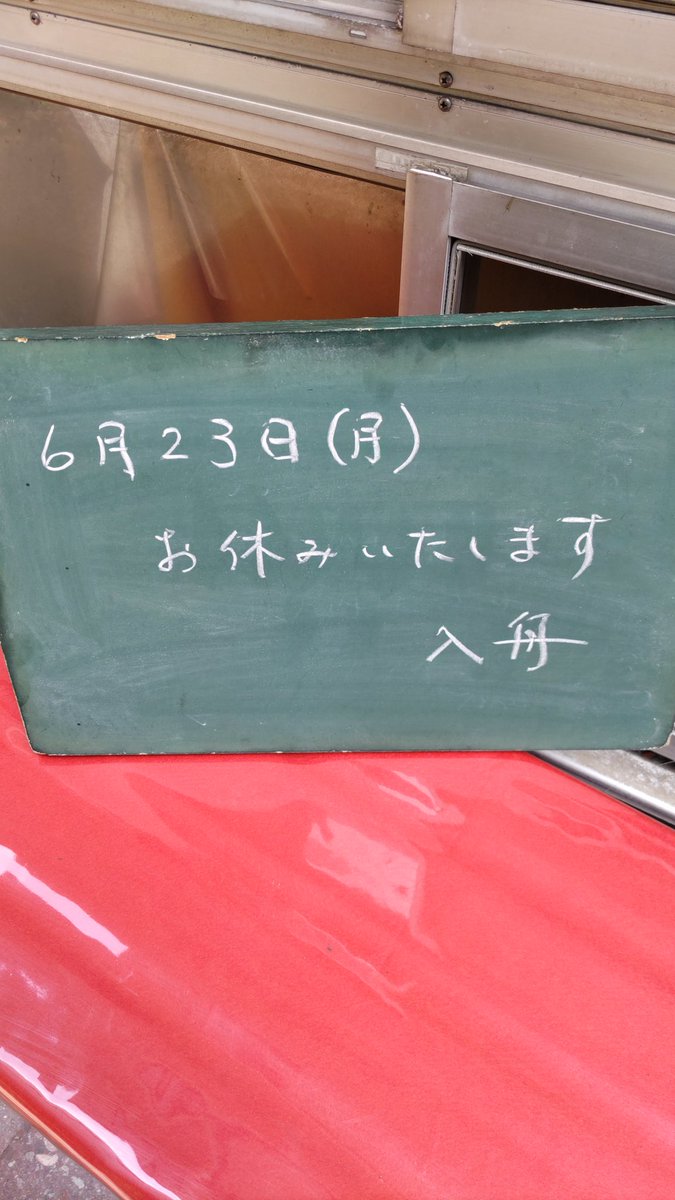 6月23日(月)
お休みいたします
入舟